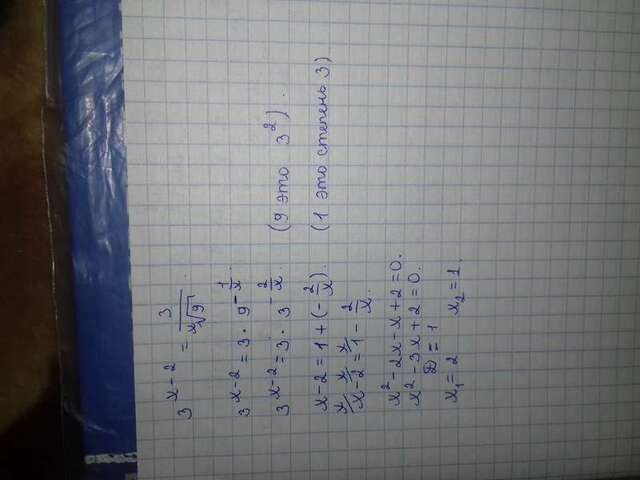 3^(x-2) = 3/ˣ√9
3^(x-2) = 3 · 9^(-1/x)
3^(x-2) = 3 · 3^(-2/x) (9 это 3²).
x-2 = 1 + (-2/x). (1 это степень 3)
x/ x/ x/
x-2 = 1 - 2/x.
x² - 2x - x + 2 = 0.
x² - 3x + 2 = 0.
D = 1
x₁ = 2 x₂ = 1.